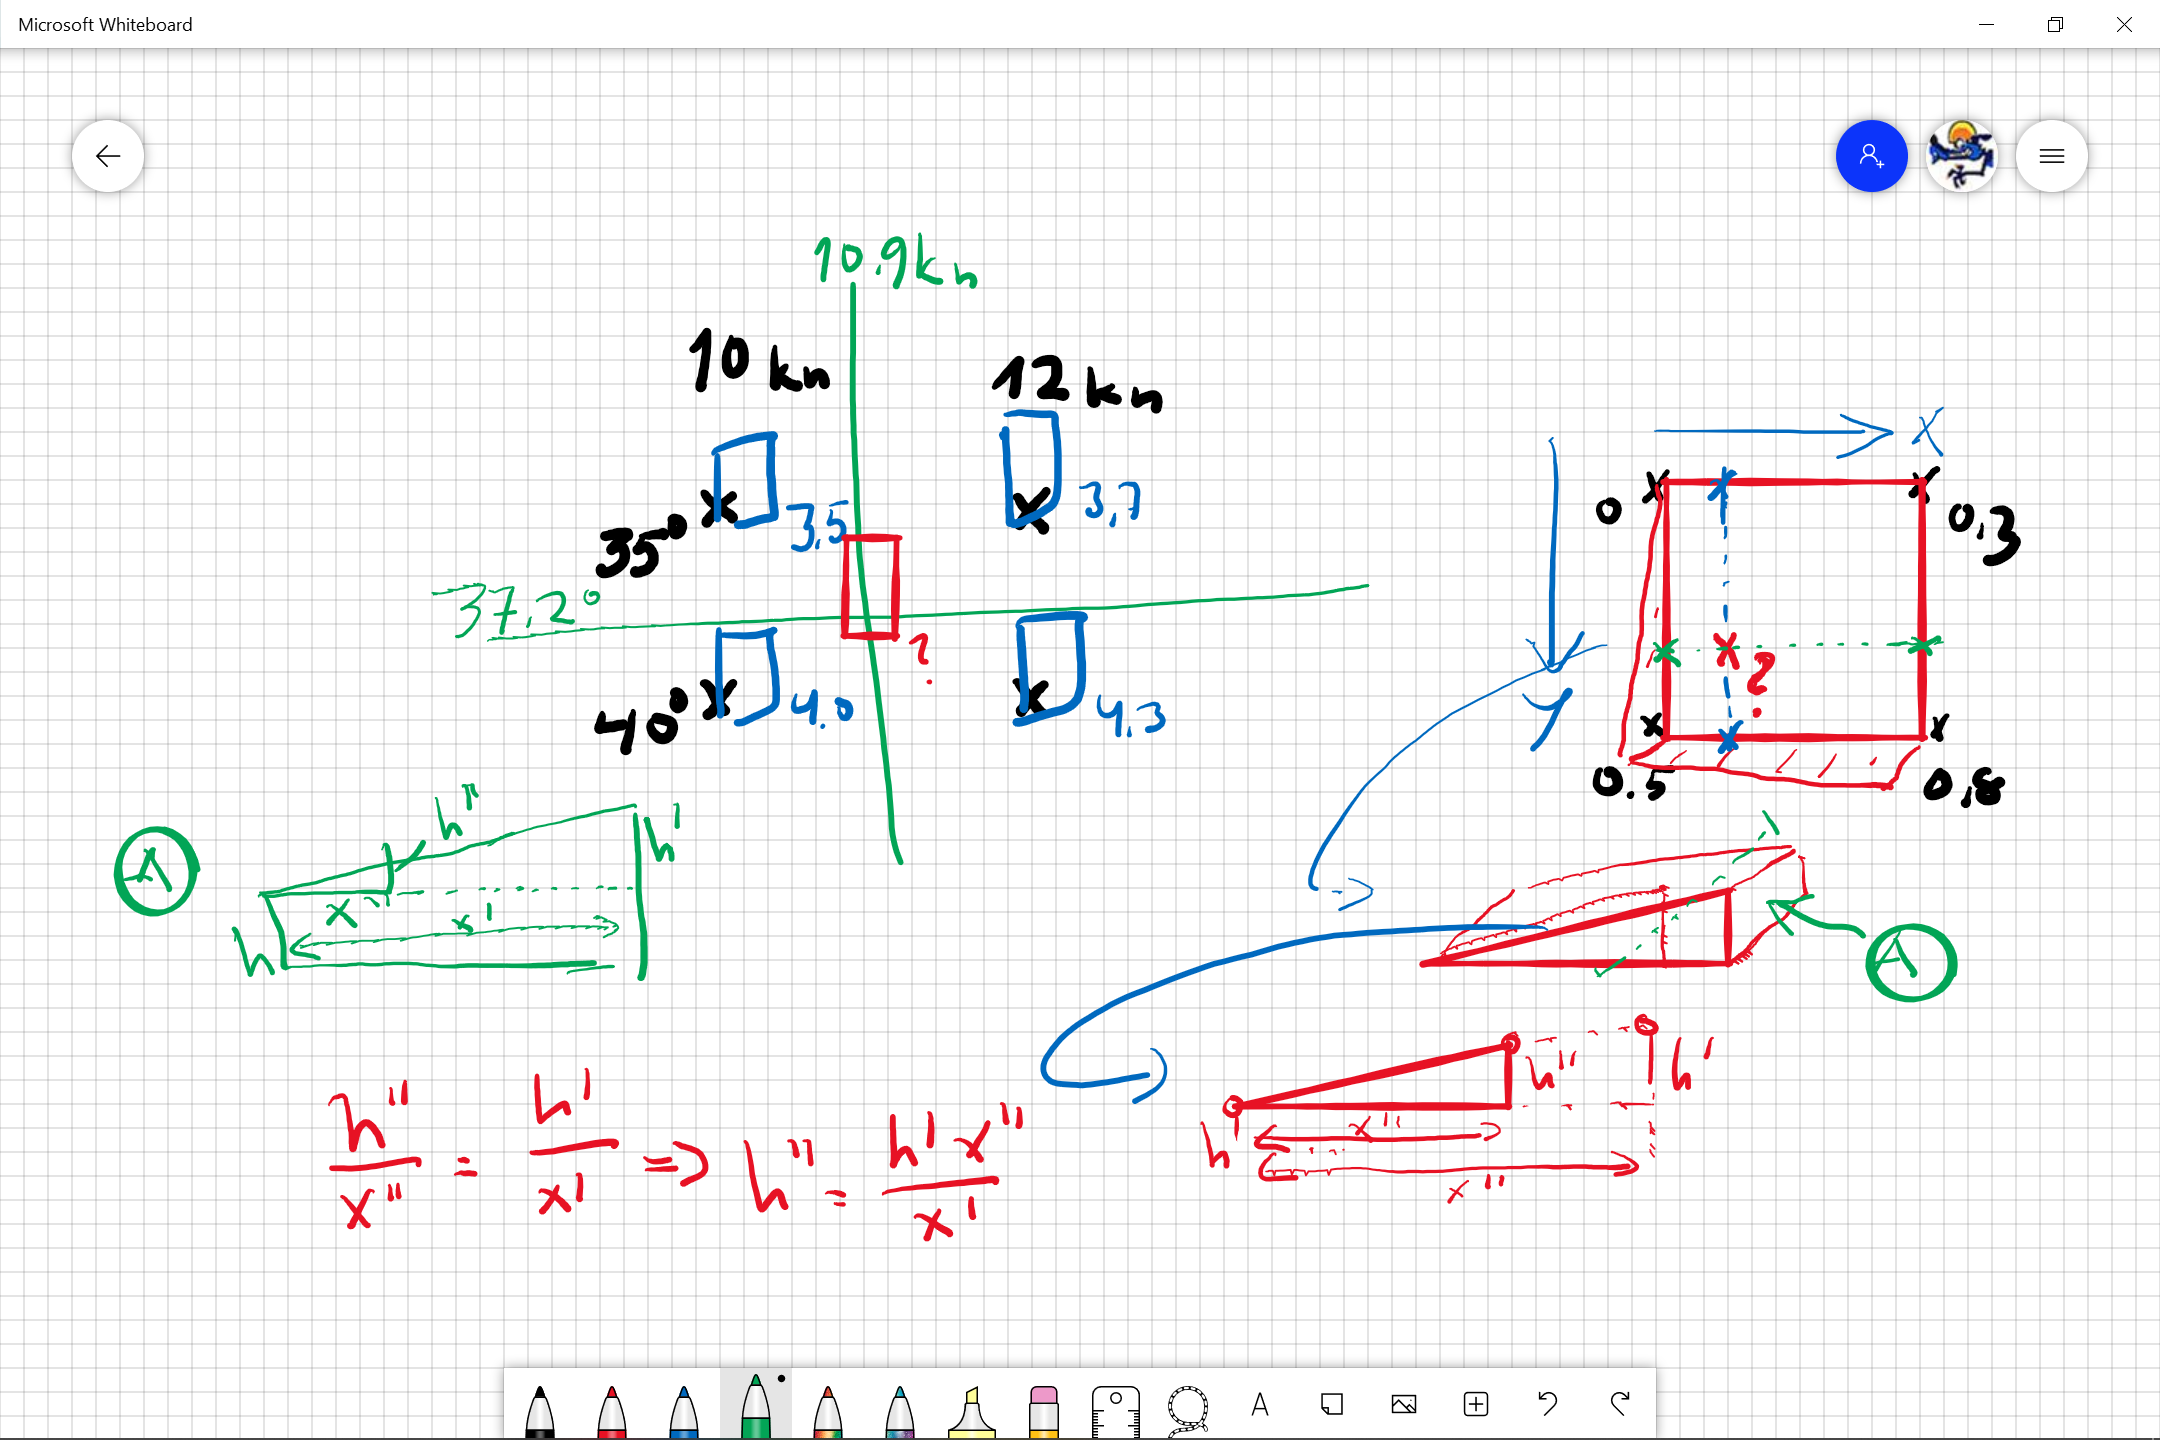 Microsoft Whiteboard
10.9kn
10 kn
12 kn
X
35°
3,5
3,7
0
0,3
37,2°
?
?
40°
4.0
4,3
Y
0.5
0,8
A
h"
h'
x"
x'
h
A
h"
h'
h
x"
x"
h"/x" = h'/x' => h" = h' x"/x'
A